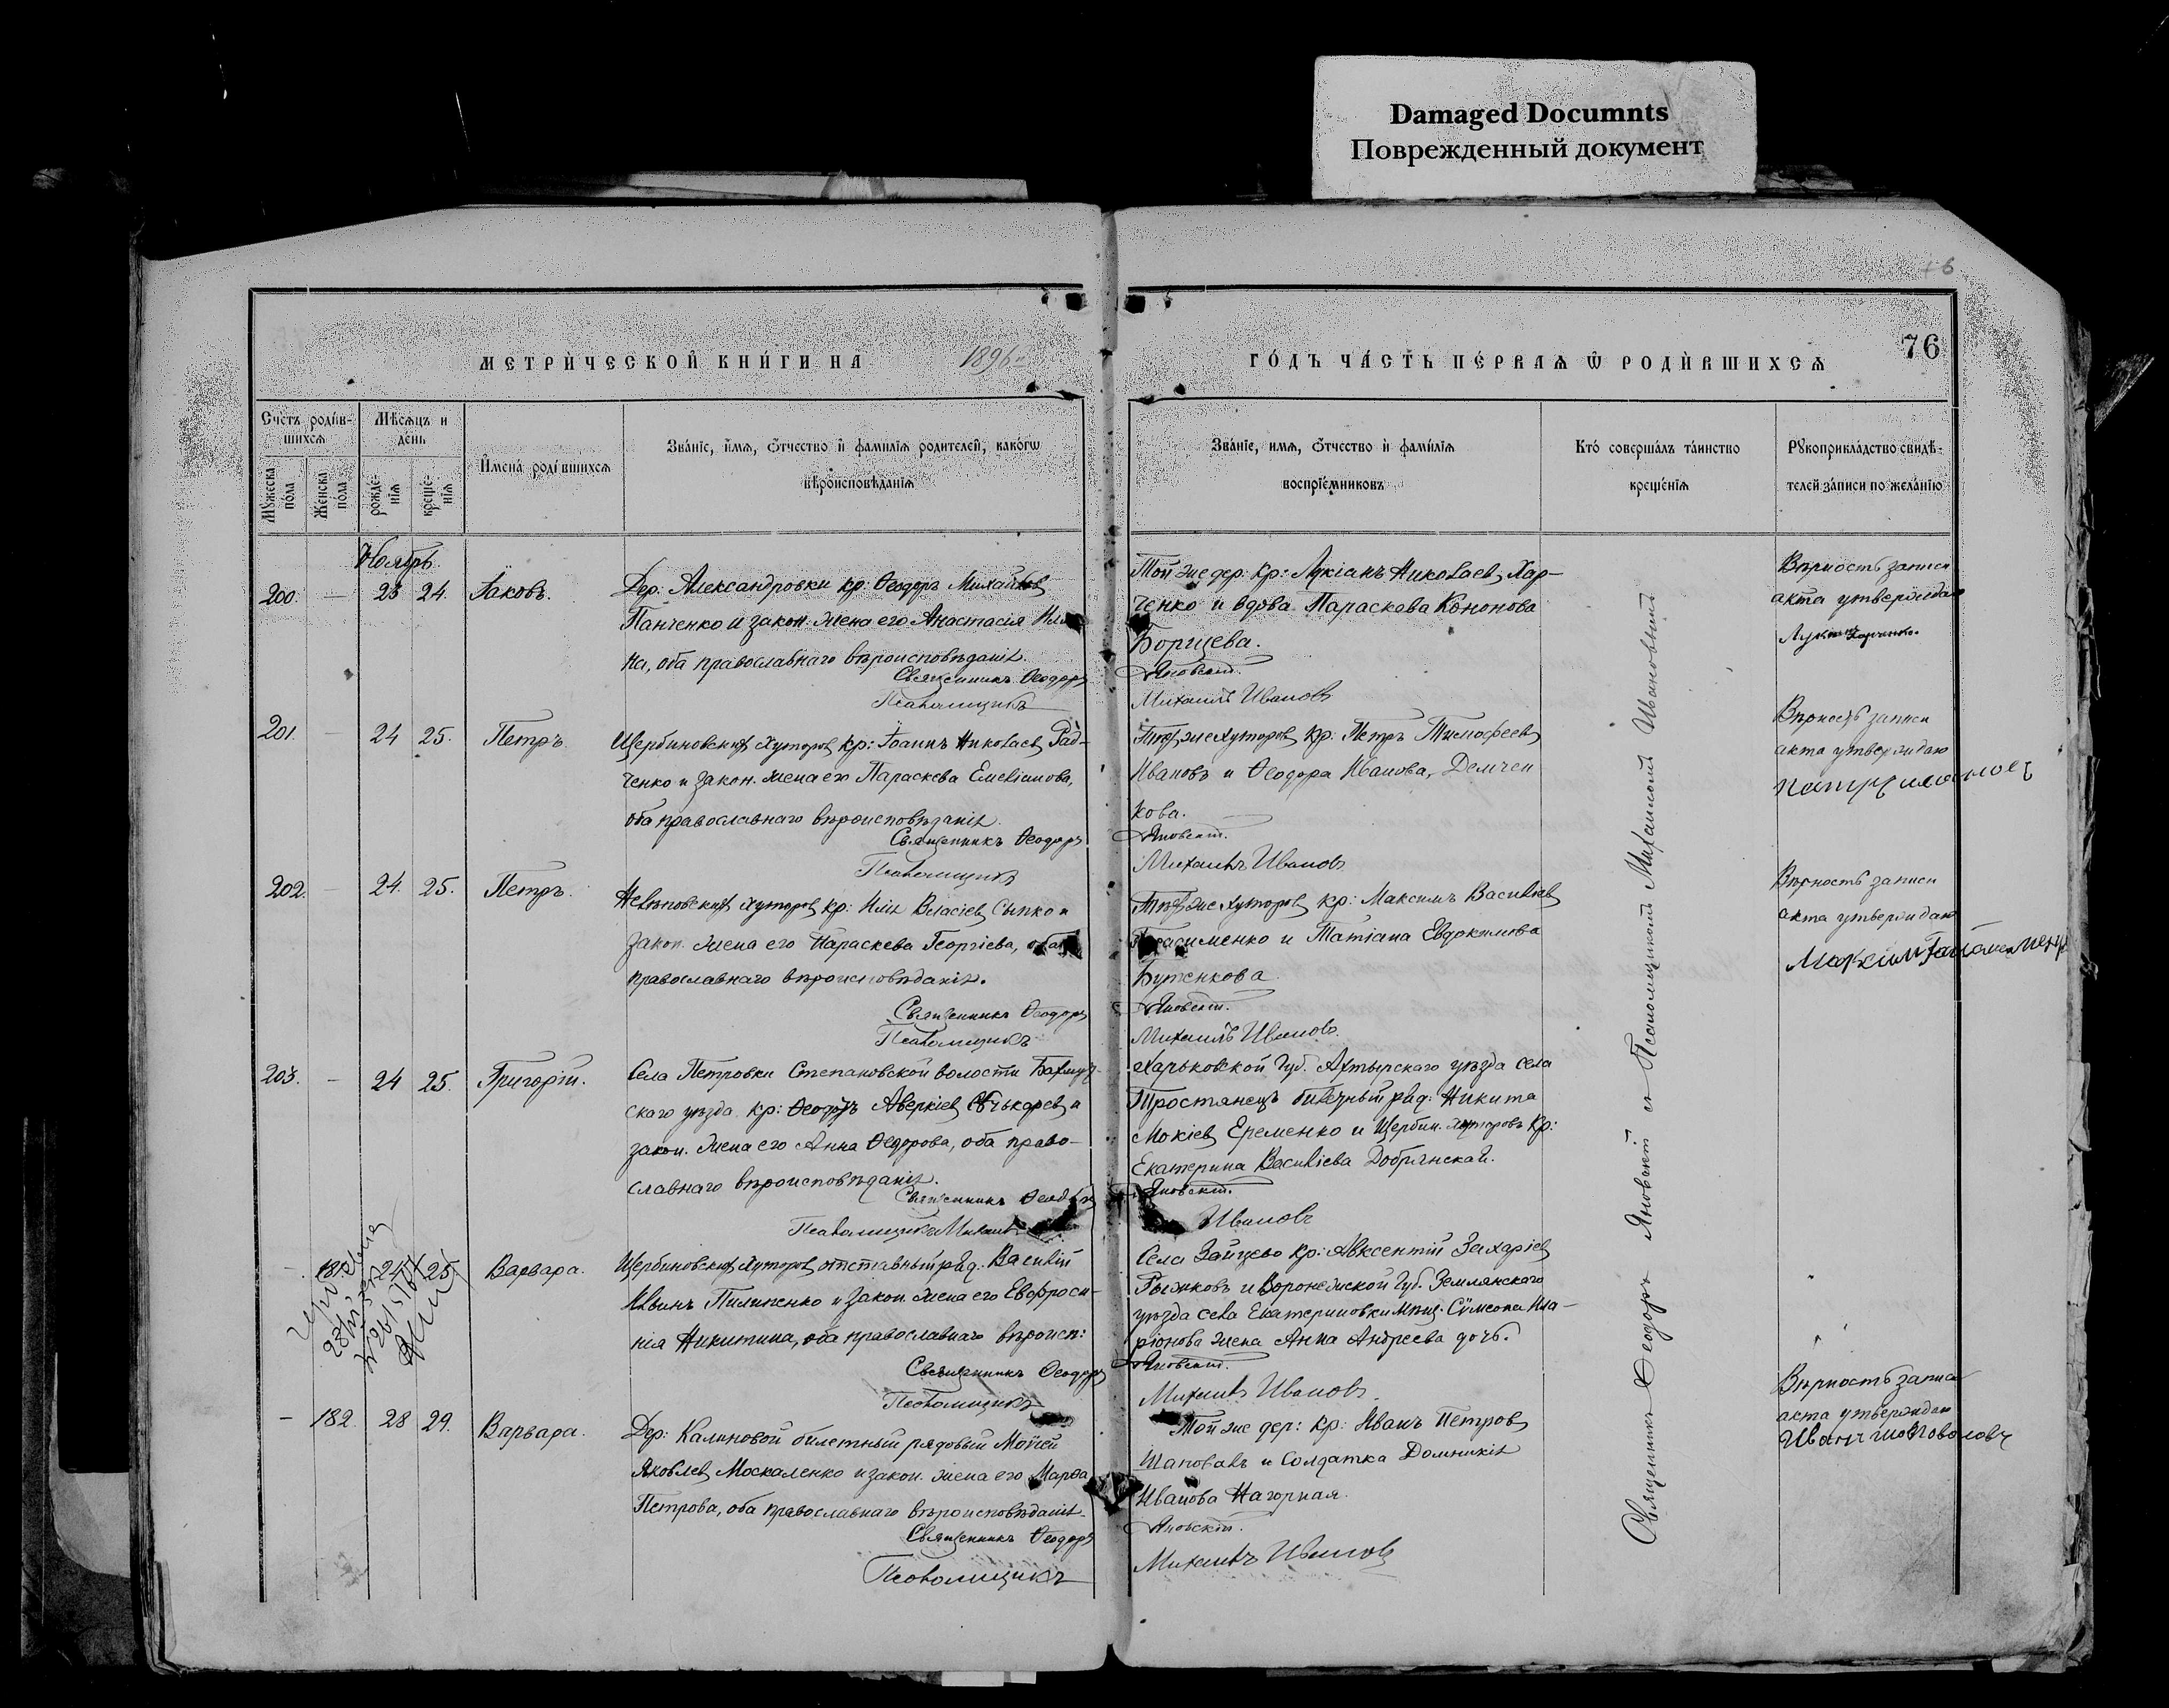 Damaged Documnts
Поврежденный документ
76
МЕТРИ́ЧЕСКОЙ КНИ́ГИ НА 1896 ГО́ДЪ ЧА́СТЬ ПЕ́РВАѦ Ѿ РОДИ́ВШИХСѦ
Сче́тъ роди́в-
шихсѧ
Мѣ́сѧцъ и
де́нь
Мꙋ́жеска
по́ла
Же́нска
по́ла
рожде́-
нїѧ
креще́-
нїѧ
И҆мена̀ роди́вшихсѧ
Зва́нїе, и҆́мѧ, ѻ҆́тчество и҆ фами́лїѧ родителей, како́гѡ
вѣроисповѣ́данїѧ
Зва́нїе, имѧ, ѻ҆́тчество и҆ фами́лїѧ
воспрїе́мниковъ
Кто̀ соверша́лъ та́инство
креще́нїѧ
Рꙋкоприкла́дство свидѣ́-
телей за́писи по жела́нїю
Ноябрь
200. — 23 24. Іаковъ.
Дер. Александровки кр: Ѳеодоръ Михайловъ
Панченко и закон. жена его Анастасія
на, оба православнаго вѣроисповѣданія.
Священникъ Ѳеодоръ
Псаломщикъ
Той же дер. кр: Лукіанъ Николаевъ Хар-
ченко и вдова Параскева Кононова
Борщева.
Яновскій.
Михаилъ Ивановъ
Вѣрность записи
акта утверждаю
Харченко.
201. — 24 25. Петръ.
Щербиновскихъ хуторовъ кр: Іоаннъ Николаевъ Рад-
ченко и закон. жена его Параскева Емеліанова,
оба православнаго вѣроисповѣданія.
Священникъ Ѳеодоръ
Псаломщикъ
Тѣхъ же хуторовъ кр: Петръ Тимофеевъ
Ивановъ и Ѳеодора Иванова, Демчен
кова.
Яновскій.
Михаилъ Ивановъ
Вѣрность записи
акта утверждаю
202. — 24. 25. Петръ.
Нелѣповскихъ хуторовъ кр: Илія Власіевъ Сыпко и
закон. жена его Параскева Георгіева, оба
православнаго вѣроисповѣданія.
Священникъ Ѳеодоръ
Псаломщикъ
Тѣхъ же хуторовъ кр: Максимъ Василіевъ
и Татіана Евдокимова
Бутенкова
Яновскій.
Михаилъ Ивановъ.
Вѣрность записи
акта утверждаю
Максим
203. — 24 25. Григорій.
Села Петровки Степановской волости Бахмут-
скаго уѣзда кр: Ѳеодоръ Аверкіевъ и
закон. жена его Анна Ѳедорова, оба право-
славнаго вѣроисповѣданія.
Священникъ
Псаломщикъ
Харьковской Губ. Ахтырскаго уѣзда села
Тростянецъ билетный ряд: Никита
Мокіевъ Еременко и Щербин. хуторовъ кр:
Екатерина Василіева Добрянская.
Яновскій.
Ивановъ
— 181. 24 25. Варвара.
Щербиновскихъ хуторовъ отставный ряд: Василій
Пилипенко и закон. жена его Евфроси-
нія Никитина, оба православнаго вѣроисп:
Священникъ Ѳеодоръ
Псаломщикъ
Села Зайцево кр: Авксентій Захаріевъ
Рыжковъ и Воронежской Губ. Землянскаго
уѣзда села Екатериновки Сѵмеона Ила-
ріонова жена Анна Андреева дочь.
Яновскій.
Михаилъ Ивановъ.
— 182. 28 29. Варвара.
Дер: Калиновой билетный рядовый Моѵсей
Яковлевъ Москаленко и закон. жена его Марѳа
Петрова, оба православнаго вѣроисповѣданія.
Священникъ Ѳеодоръ
Псаломщикъ
Той же дер: кр: Иванъ Петровъ
Шаповалъ и солдатка Домникія
Иванова Нагорная.
Яновскій.
Михаилъ Ивановъ
Вѣрность записи
акта утверждаю
Иван
Священникъ Ѳеодоръ Яновскій съ Псаломщикомъ Михаиломъ Ивановымъ